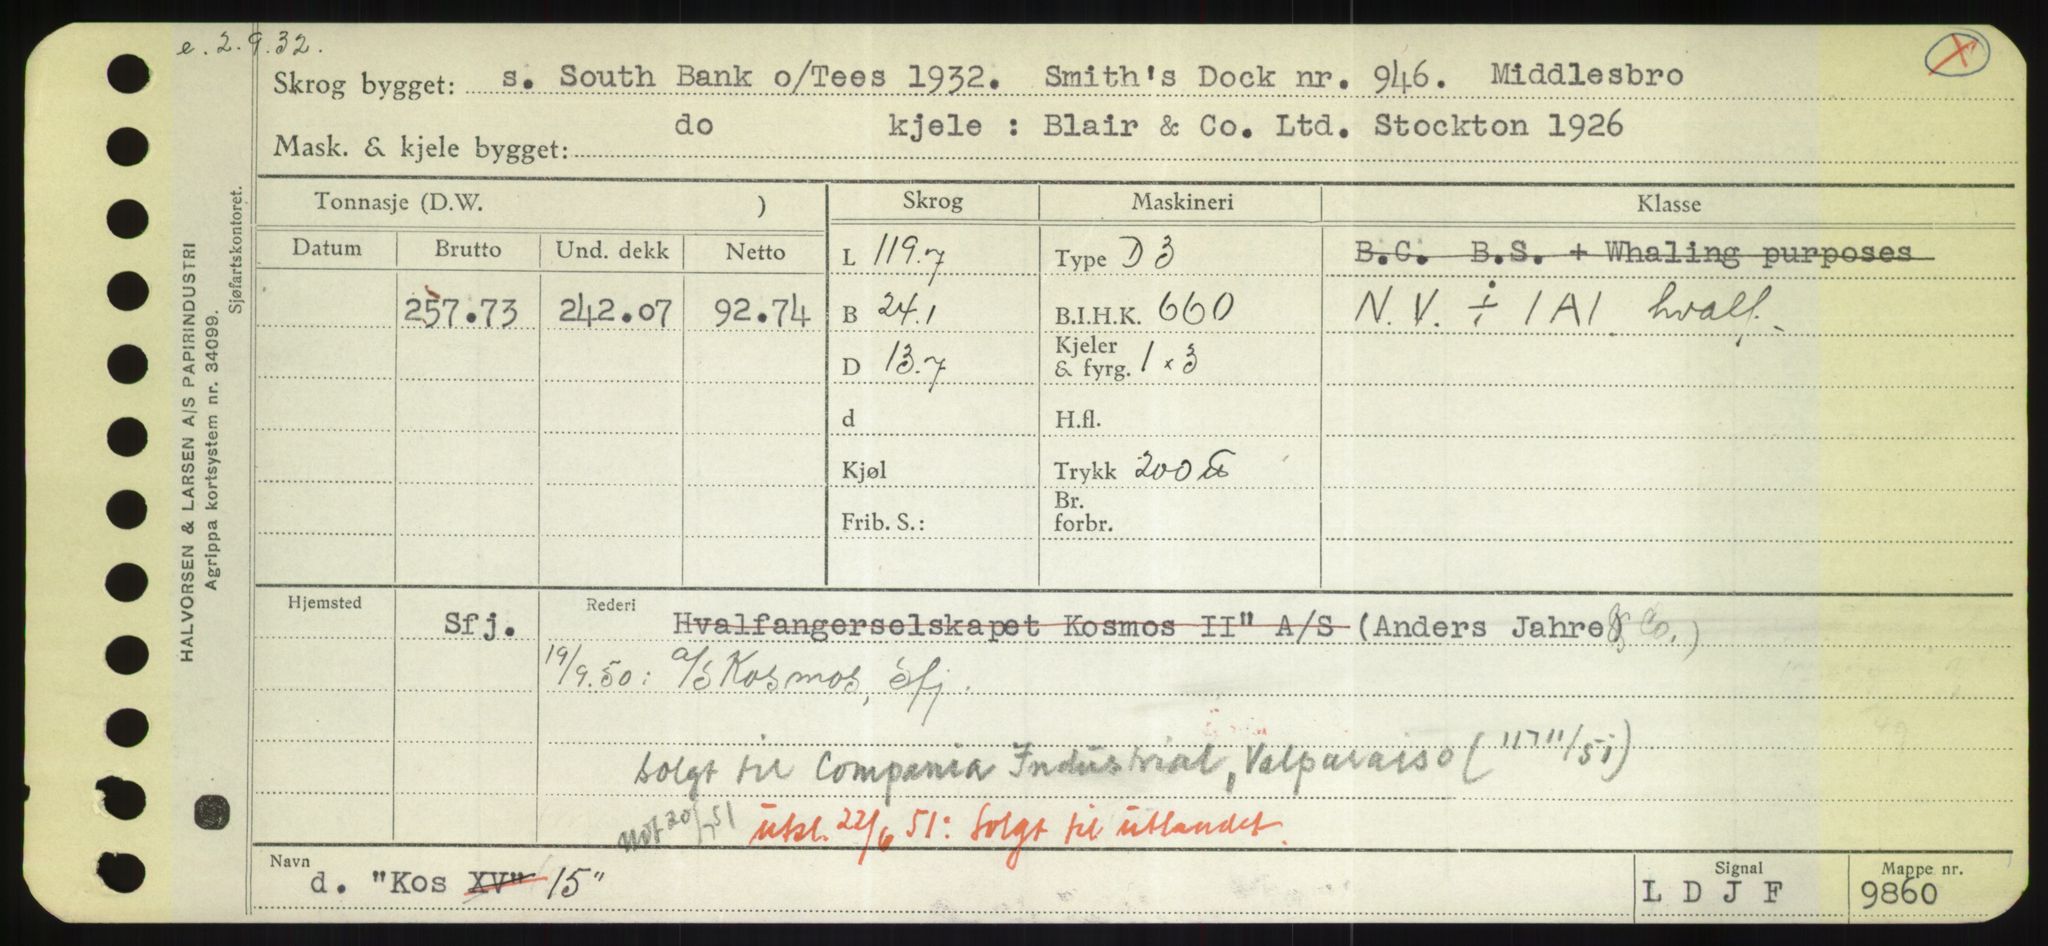 e. 2.9.32.
Skrog bygget: s. South Bank o/Tees 1932. Smith's Dock nr. 946. Middlesbro
Mask. & kjele bygget: do kjele : Blair & Co. Ltd. Stockton 1926
HALVORSEN & LARSEN A/S PAPIRINDUSTRI
Agrippa kortsystem nr. 34099.
Sjøfartskontoret.
Tonnasje (D.W. ) Skrog Maskineri Klasse
Datum Brutto Und. dekk Netto L 119.7 Type D 3 B.C. B.S. + Whaling purposes
257.73 242.07 92.74 B 24.1 B.I.H.K. 660 N.V. ÷ 1A1. hvalf.
D 13.7 Kjeler & fyrg. 1 x 3
d H.fl.
Kjøl Trykk 200 ℔
Frib. S.: Br. forbr.
Hjemsted Sfj. Rederi Hvalfangerselskapet Kosmos II" A/S (Anders Jahre & Co.)
19/9.50: a/s Kosmos, Sfj.
Solgt til Compania Industrial, Valparaiso ("117"/51)
not 20/7 51 utsl. 22/6 51: Solgt til utlandet.
Navn d. "Kos XV" 15" Signal L D J F Mappe nr. 9860